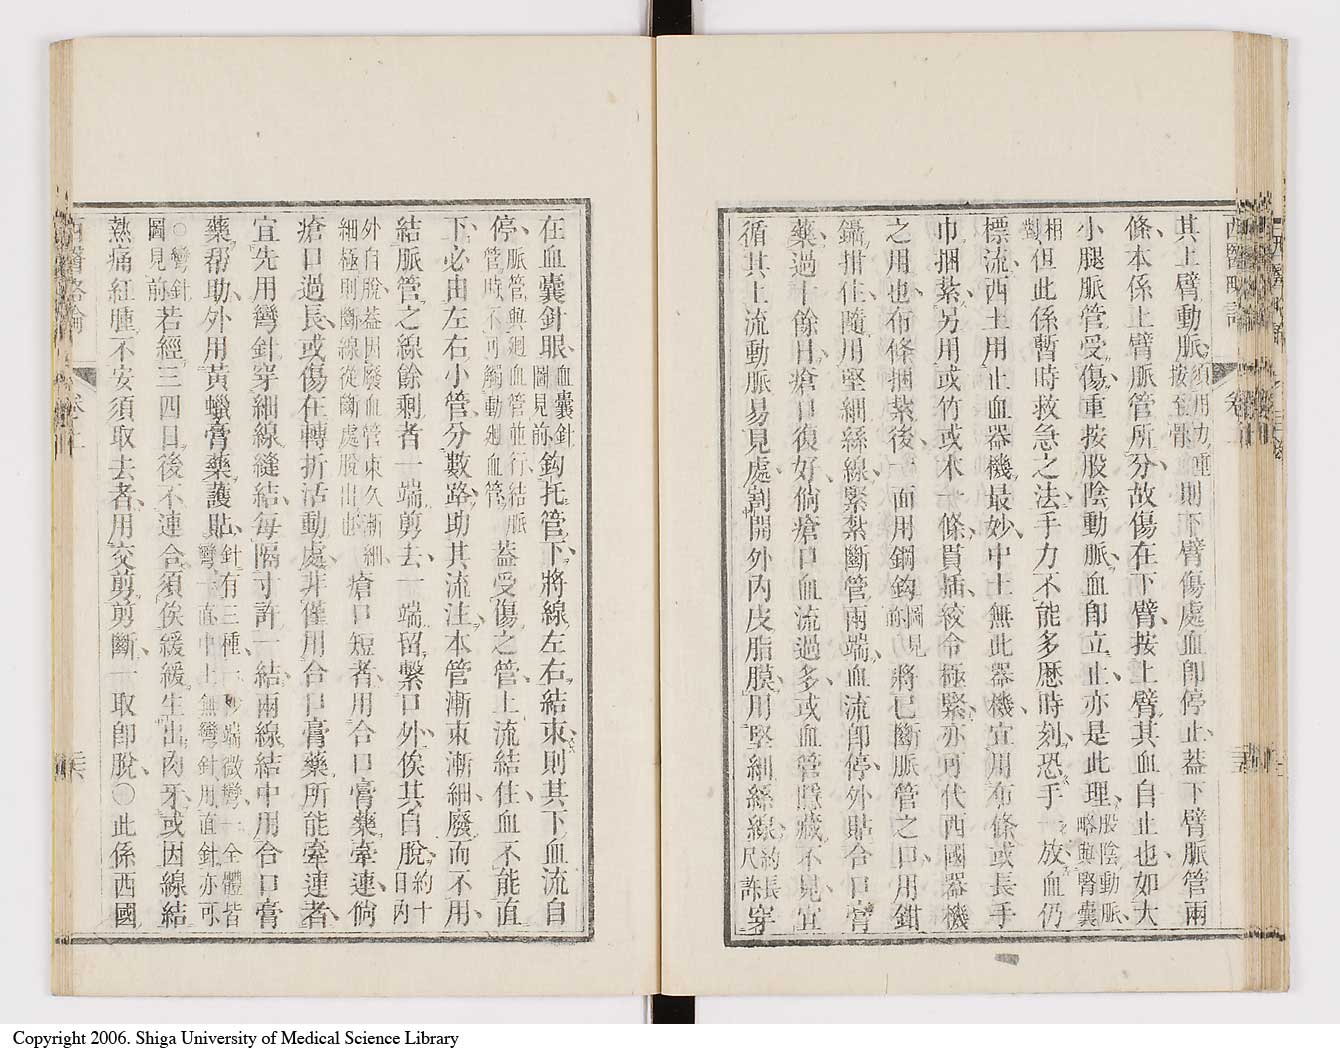 其上臂動脈須用力重按至骨則下臂傷處血卽停止蓋下臂脈管兩
條本係上臂脈管所分故傷在下臂按上臂其血自止也如大
小腿脈管受傷重按股陰動脈血卽立止亦是此理股陰動脈略與腎囊
相對但此係暫時救急之法手力不能多歷時刻恐手一放血仍
標流西土用止血器機最妙中土無此器機宜用布條或長手
巾捆紮另用或竹或木一條貫插絞令極緊亦可代西國器機
之用也布條捆紮後一面用鋼鈎圖見前將已斷脈管之口用鉗
鑷拑住隨用堅細絲線緊紮斷管兩端血流卽停外貼合口膏
藥過十餘日瘡口復好倘瘡口血流過多或血管隱藏不見宜
循其上流動脈易見處割開外內皮脂膜用堅細絲線約長尺許穿
西醫略論
卷上
在血囊針眼血囊針圖見前鈎托管下將線左右結束則其下血流自
停脈管與廻血管並行結脈管時不可觸動廻血管蓋受傷之管上流結住血不能直
下必由左右小管分數路助其流注本管漸束漸細廢而不用
結脈管之線餘剩者一端剪去一端留繫口外俟其自脫約十日內
外自脫蓋因廢血管束久漸細細極則斷線從斷處脫出也瘡口短者用合口膏藥牽連倘
瘡口過長或傷在轉折活動處非僅用合口膏藥所能牽連者
宜先用彎針穿細線縫結每隔寸許一結兩線結中用合口膏
藥帮助外用黃蠟膏藥護貼針有三種一抄端微彎一全體皆彎一直中土無彎針用直針亦可
○彎針圖見前若經三四日後不連合須俟緩緩生出肉牙或因線結
熱痛紅腫不安須取去者用交剪剪斷一取卽脫○此係西國
西醫略論
卷上
Copyright 2006. Shiga University of Medical Science Library